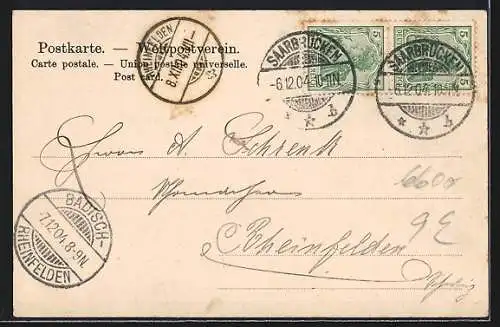 Postkarte. — Weltpostverein.
Carte postale. — Union postale universelle.
Post card.
RHEINFELDEN
SAARBRÜCKEN
-6.12.04.10-11N.
* * b
5
5
SAARBRÜCKEN
6.12.04.10-11N.
* * b
Herrn A. Schrenk
Rheinfelden
BADISCH-
-7.12.04.8-9N.
RHEINFELDEN
6600r
9E